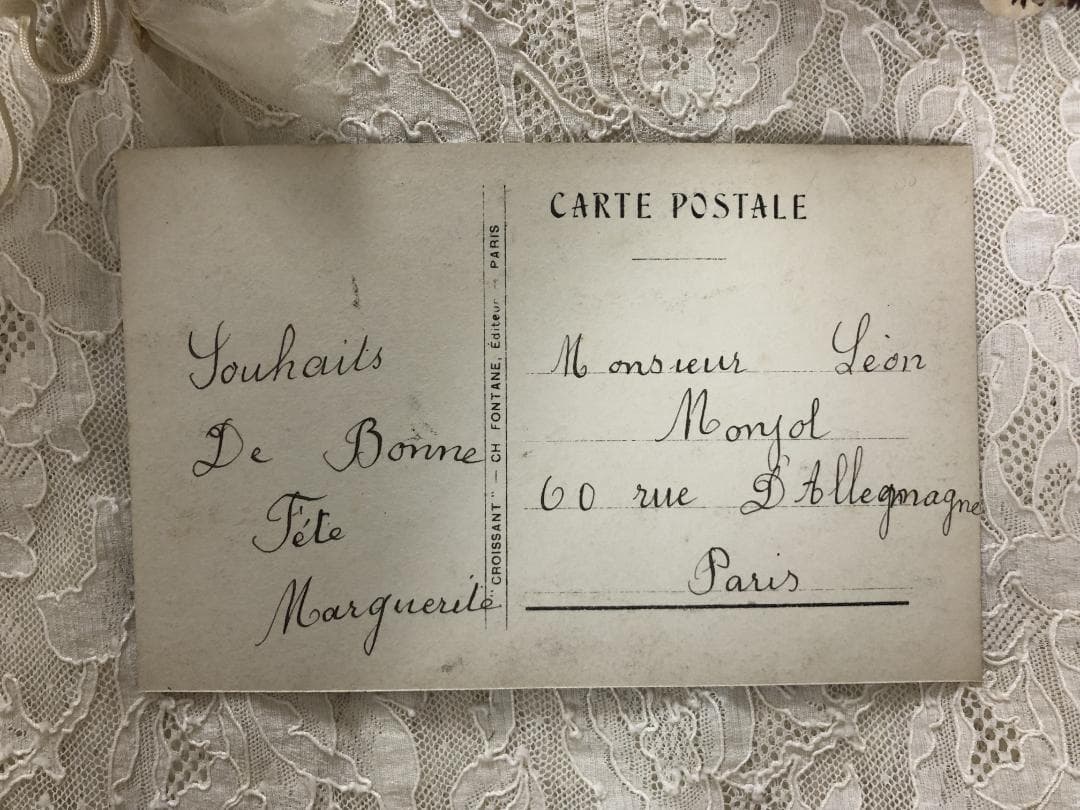 Souhaits
De Bonne
Fête
Marguerite
"CROISSANT" — CH FONTANE, Éditeur — PARIS
CARTE POSTALE
Monsieur Léon
Monjol
60 rue D'Allegmagne
Paris